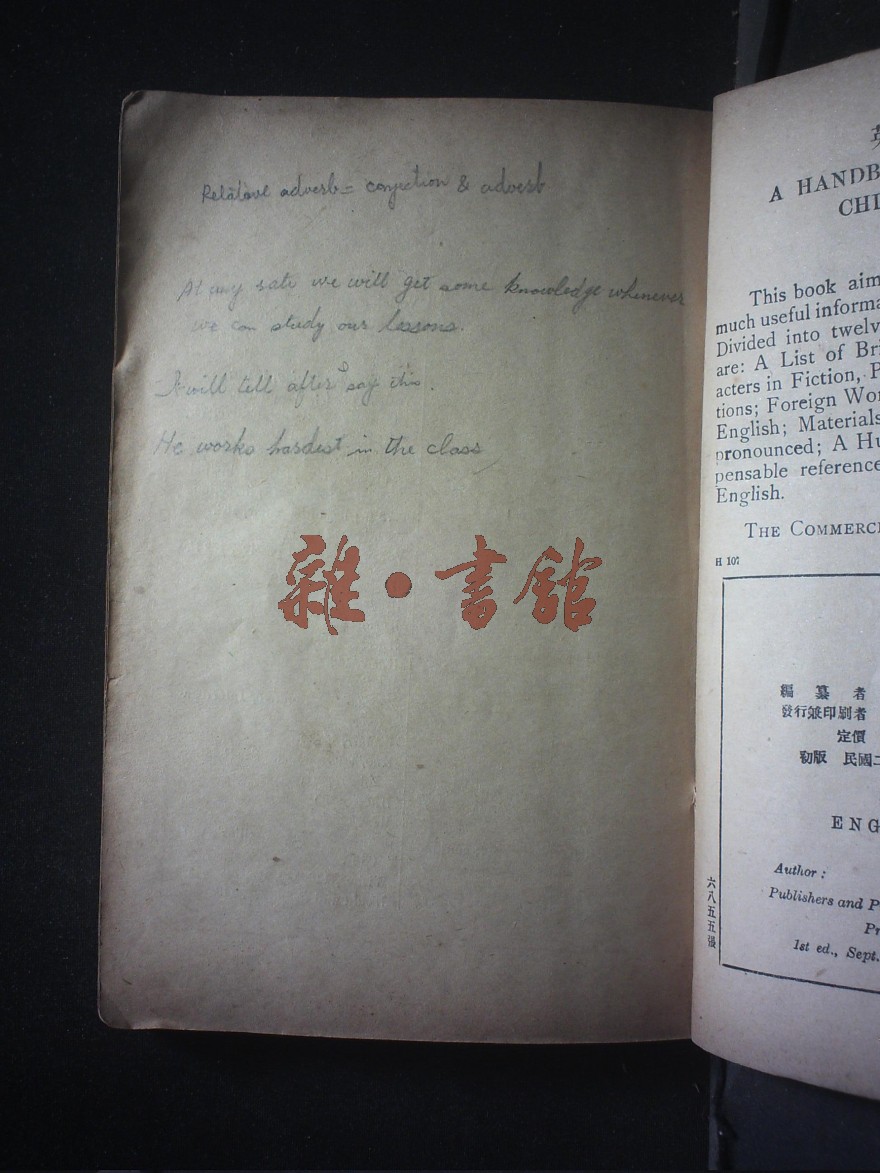 Relative adverb = conjection & adverb
At any rate we will get some knowledge whenever
we can study our lessons.
I will tell after say this.
He works hardest in the class
雜·書館
英
A HANDB
CHI
This book aim
much useful informa
Divided into twelv
are: A List of Bri
acters in Fiction, P
tions; Foreign Wor
English; Materials
pronounced; A Hu
pensable reference
English.
THE COMMERCI
H 107
編纂者
發行兼印刷者
定價
初版 民國二
ENG
Author:
Publishers and P
Pr
1st ed., Sept.
六八五五張